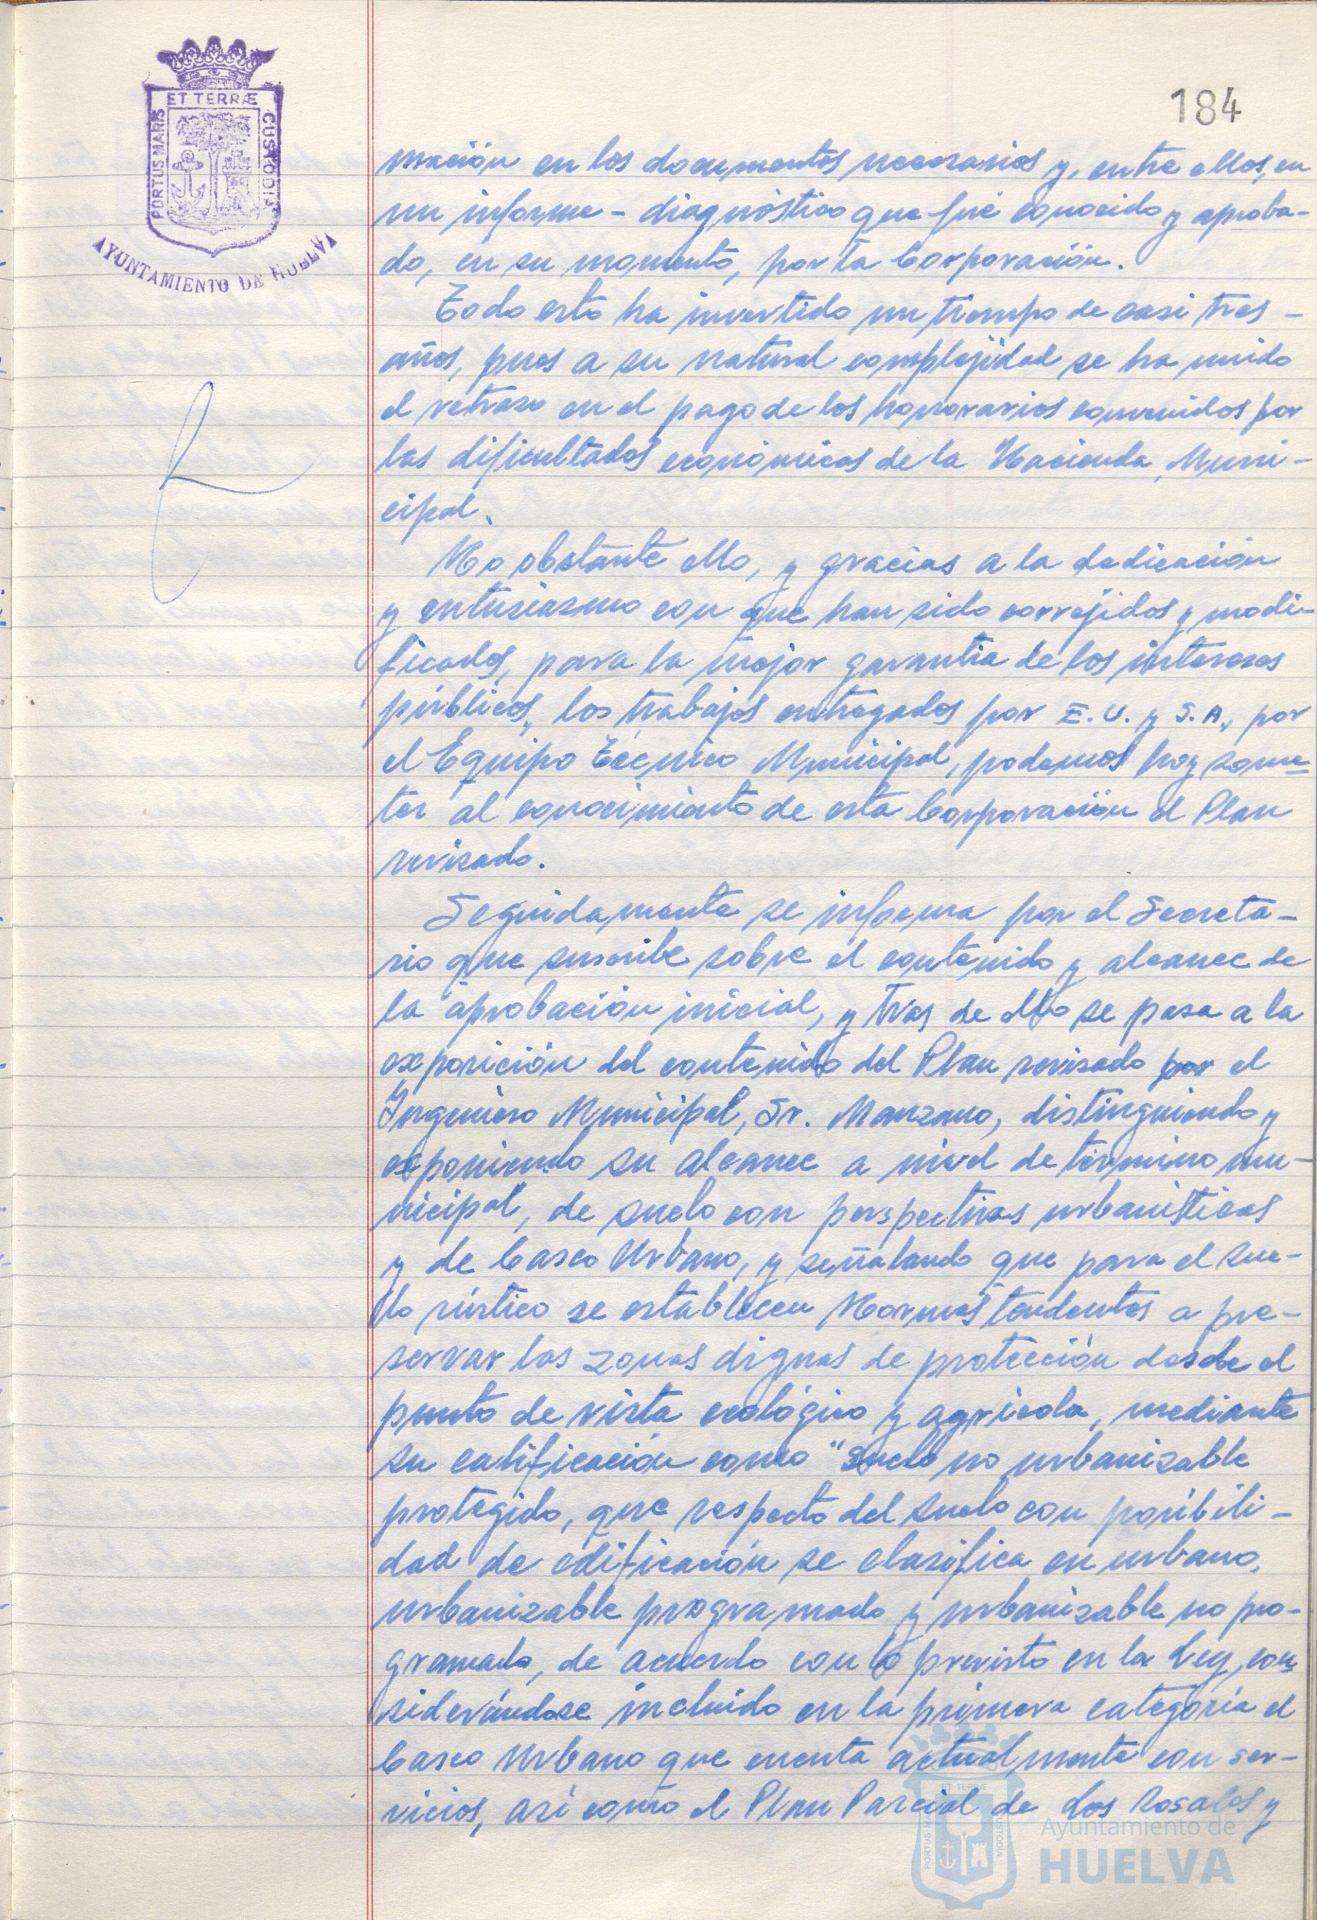 ET TERRÆ
PORTUS MARIS
CUSTODIA
AYUNTAMIENTO DE HUELVA
184
mación en los documentos necesarios y, entre ellos, en
un informe-diagnóstico que fué conocido y aproba-
do, en su momento, por la Corporación.
Todo esto ha invertido un tiempo de casi tres
años, pues a su natural complejidad se ha unido
el retraso en el pago de los honorarios convenidos por
las dificultades económicas de la Hacienda Muni-
cipal.
No obstante ello, y gracias a la dedicación
y entusiasmo con que han sido corregidos y modi-
ficados, para la mejor garantía de los intereses
públicos, los trabajos entregados por E.U. y S.A., por
el Equipo Técnico Municipal, podemos hoy some-
ter al conocimiento de esta Corporación el Plan
revisado.
Seguidamente se informa por el Secreta-
rio que suscribe sobre el contenido y alcance de
la aprobación inicial, y tras de ello se pasa a la
exposición del contenido del Plan revisado por el
Ingeniero Municipal, Sr. Manzano, distinguiendo y
exponiendo su alcance a nivel de término mu-
nicipal, de suelo con perspectivas urbanísticas
y de Casco Urbano, y señalando que para el sue-
lo rústico se establecen Normas tendentes a pre-
servar las zonas dignas de protección desde el
punto de vista ecológico y agrícola, mediante
su calificación como "Suelo no urbanizable
protegido, que respecto del suelo con posibili-
dad de edificación se clasifica en urbano,
urbanizable programado y urbanizable no pro-
gramado, de acuerdo con lo previsto en la Ley, con-
siderándose incluido en la primera categoría el
Casco Urbano que cuenta actualmente con ser-
vicios, así como el Plan Parcial de Los Rosales y
Ayuntamiento de
HUELVA